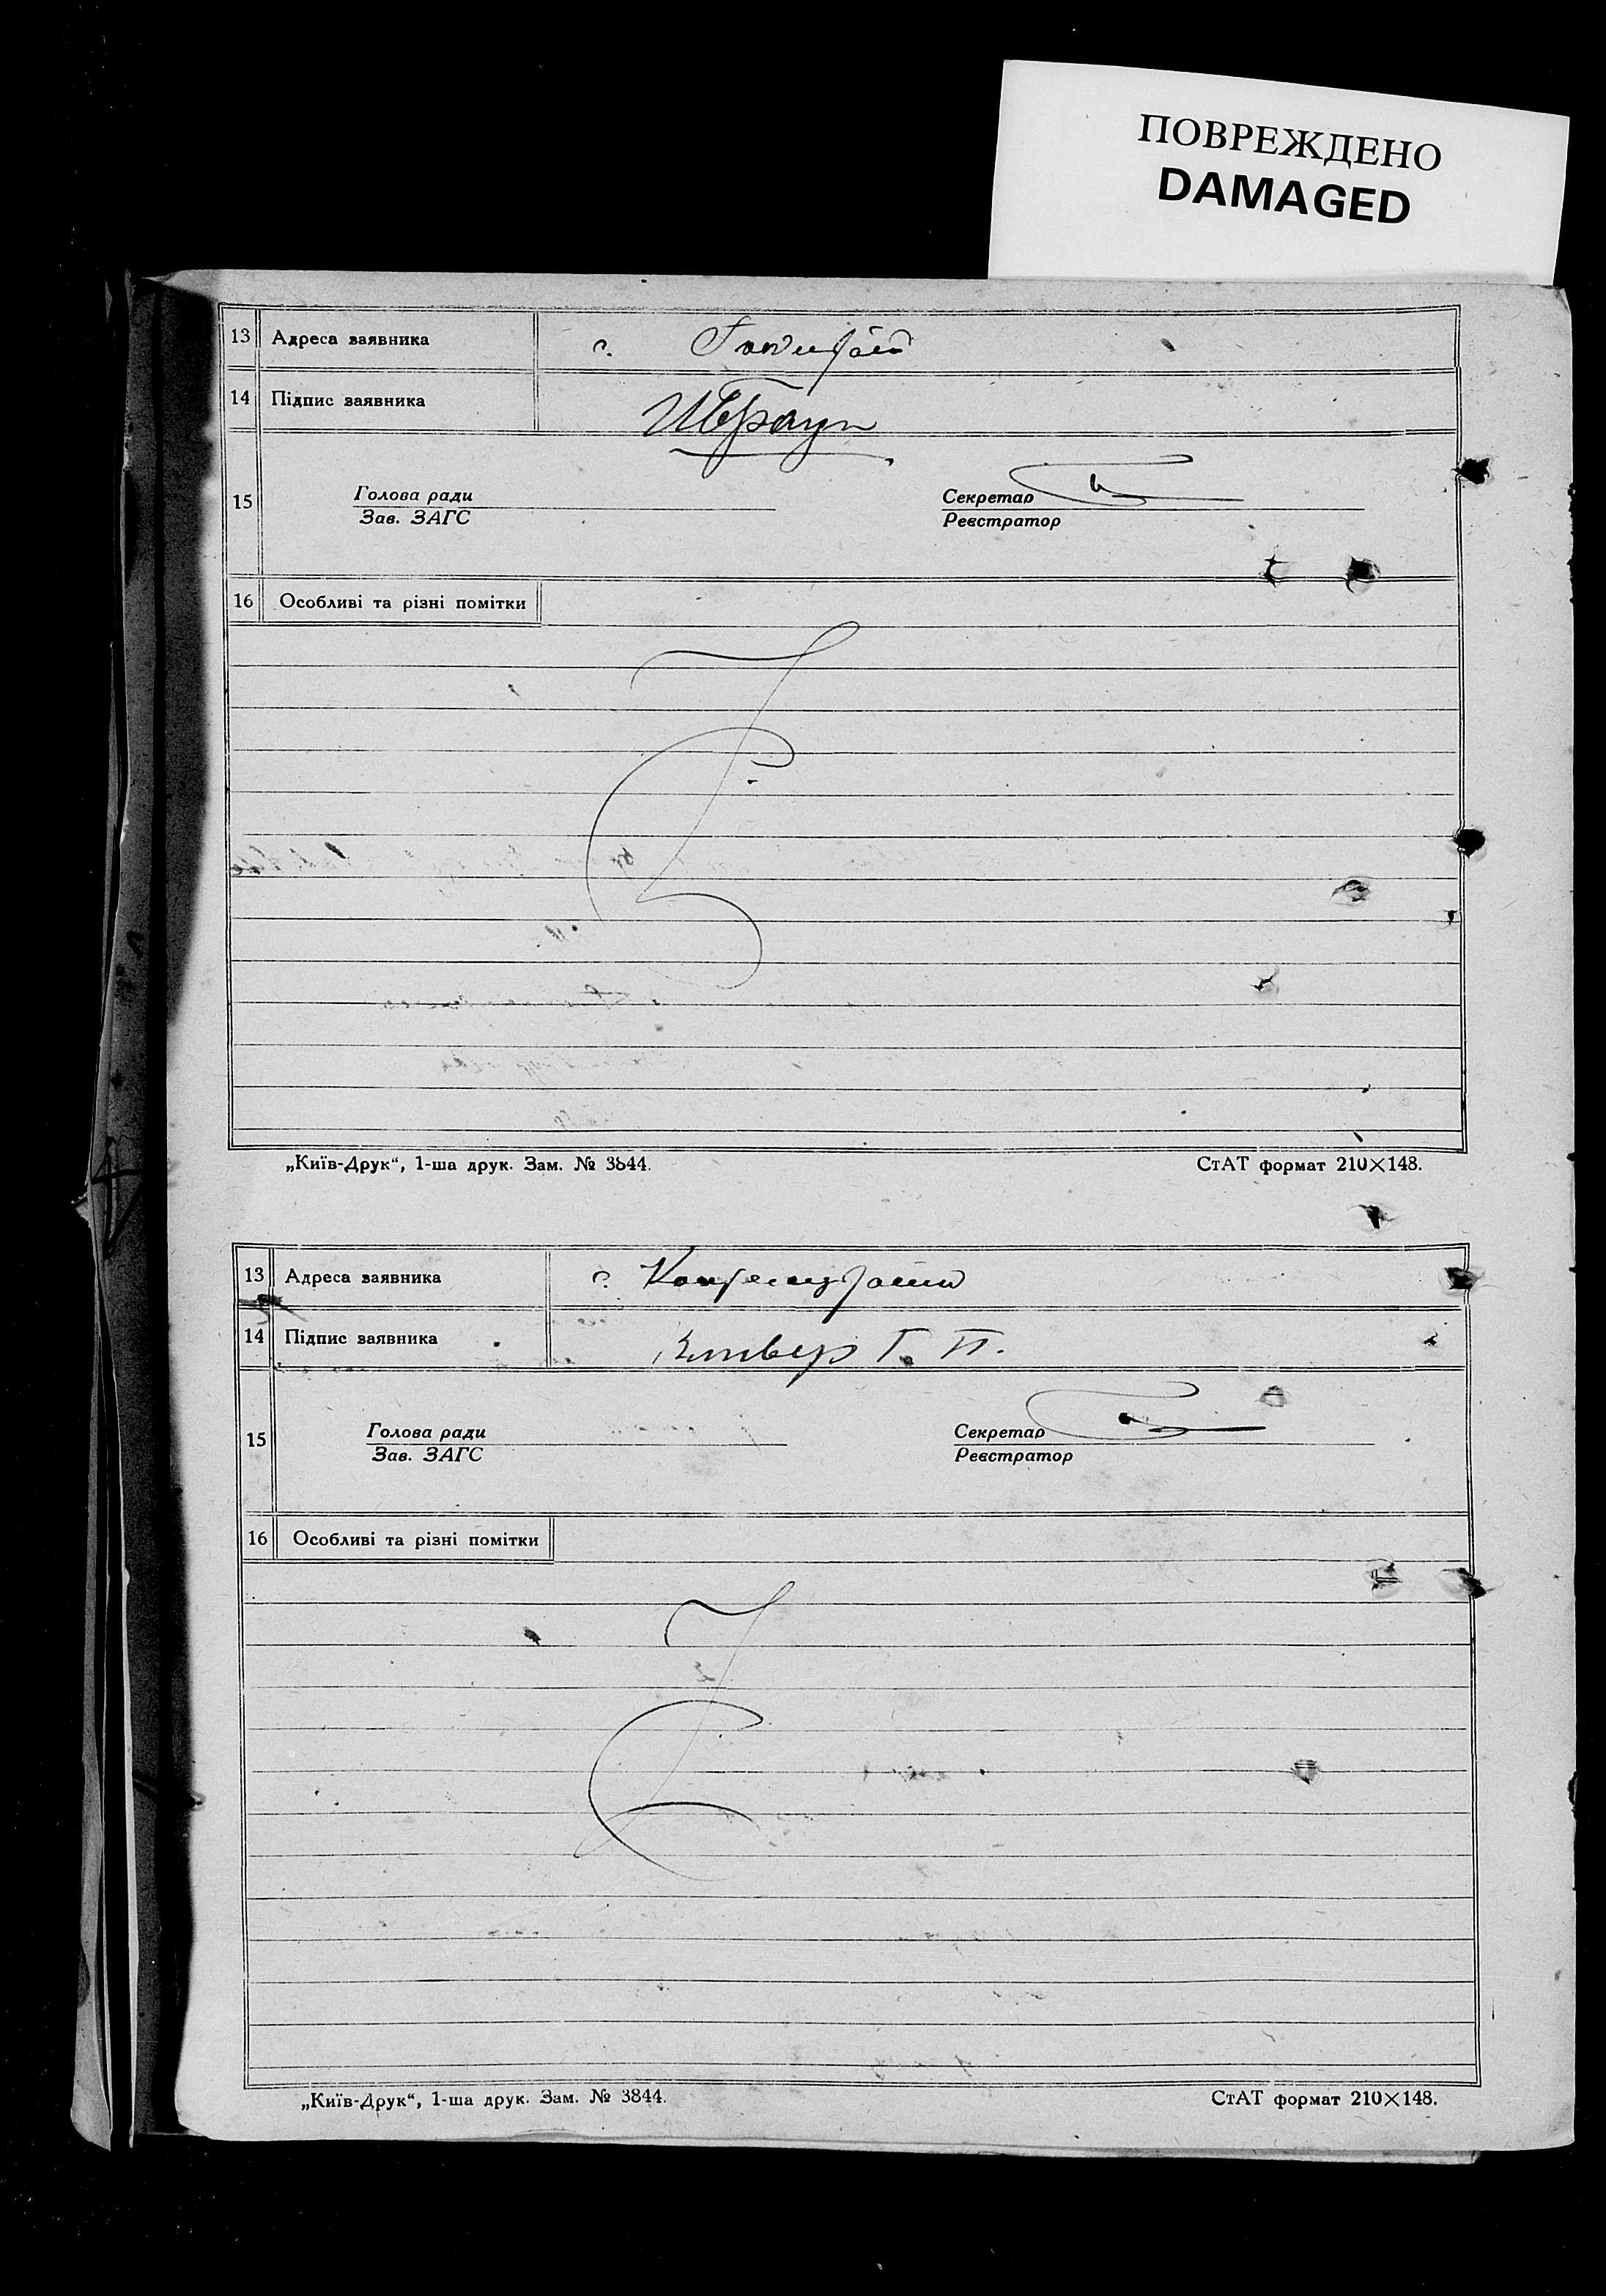 ПОВРЕЖДЕНО
DAMAGED
13 Адреса заявника с.
14 Підпис заявника ИБраун
15 Голова ради Секретар
Зав. ЗАГС Реєстратор
16 Особливі та різні помітки
„Київ-Друк“, 1-ша друк. Зам. № 3844. СтАТ формат 210×148.
13 Адреса заявника с.
14 Підпис заявника Г. П.
15 Голова ради Секретар
Зав. ЗАГС Реєстратор
16 Особливі та різні помітки
„Київ-Друк“, 1-ша друк. Зам. № 3844. СтАТ формат 210×148.